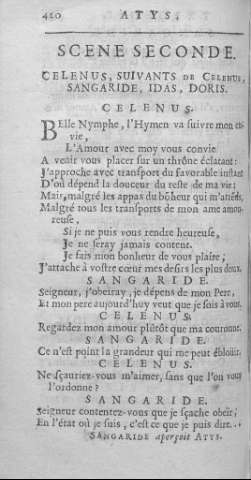 420 ATYS,
SCENE SECONDE.
CELENUS, SUIVANTS DE CELENUS,
SANGARIDE, IDAS, DORIS.
CELENUS.
BElle Nymphe, l'Hymen va suivre mon en-
vie,
L'Amour avec moy vous convie
A venir vous placer sur un thrône éclatant:
J'approche avec transport du favorable instant
D'où dépend la douceur du reste de ma vie:
Mais, malgré les appas du bõheur qui m'atéd,
Malgré tous les transports de mon ame amou-
reuse,
Si je ne puis vous rendre heureuse,
Je ne seray jamais content.
Je fais mon bonheur de vous plaire;
J'attache à vostre cœur mes desirs les plus doux.
SANGARIDE.
Seigneur, j'obeïray, je dépens de mon Pere,
Et mon pere aujourd'huy veut que je sois à vous.
CELENUS.
Regardez mon amour plûtôt que ma couronne.
SANGARIDE.
Ce n'est point la grandeur qui me peut éblouïr.
CELENUS.
Ne sçauriez-vous m'aimer, sans que l'on vous
l'ordonne?
SANGARIDE.
Seigneur contentez-vous que je sçache obeïr;
En l'état où je suis, c'est ce que je puis dire...
SANGARIDE aperçoit ATYS.